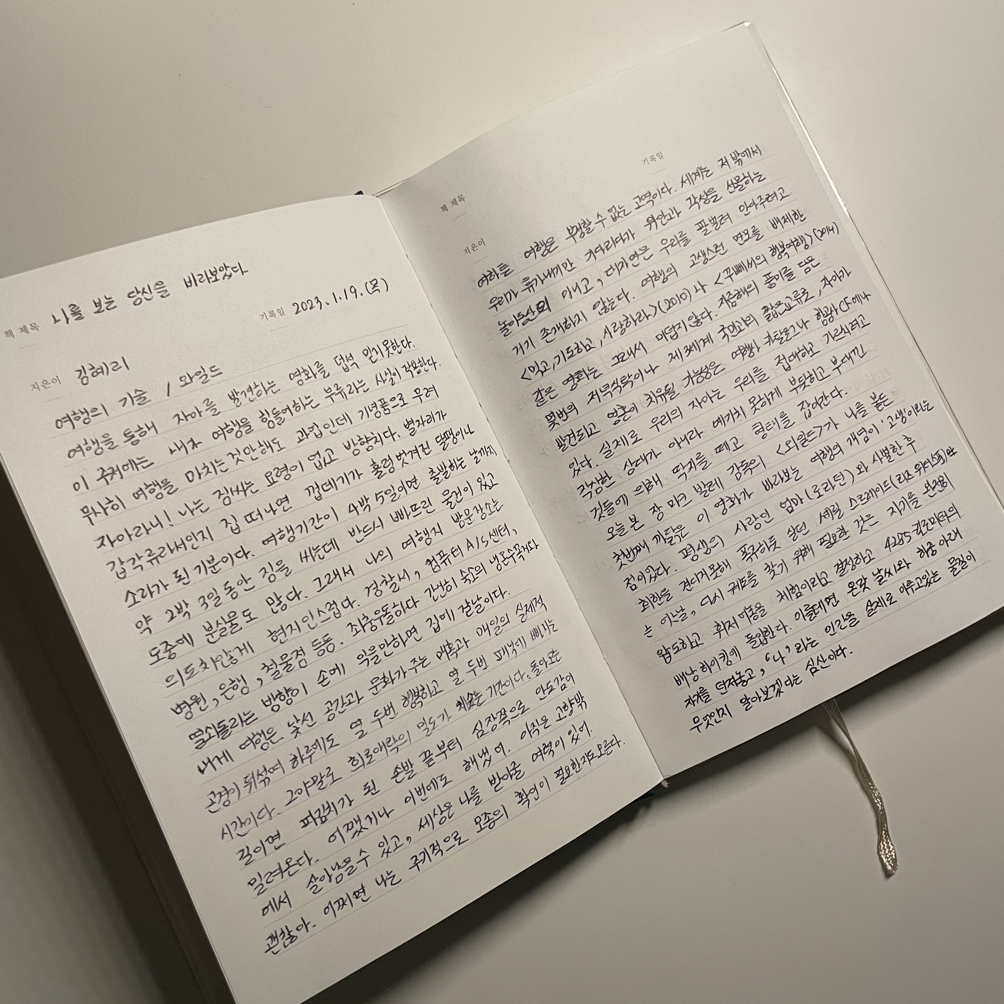 책 제목 나를 보는 당신을 바라보았다
기록일 2023.1.19.(목)
지은이 김혜리
여행의 기술 / 와일드
여행을 통해 자아를 발견하는 영화를 덥석 안지 못한다.
이 주저에는 내가 여행을 힘들어하는 부류라는 사실이 작용한다.
무사히 여행을 마치는 것만 해도 과업인데 기념품으로 무려
자아라니! 나는 짐싸는 요령이 없고 방향치다. 별자리가
갑각류라서인지 집 떠나면 껍데기가 홀렁 벗겨진 달팽이나
소라가 된 기분이다. 여행기간이 4박 5일이면 출발하는 날까지
약 2박 3일 동안 짐을 싸는데 반드시 빠뜨린 물건이 있고
도중에 분실물도 많다. 그래서 나의 여행지 방문장소는
의도치않게 현지인스럽다. 경찰서, 컴퓨터 A/S 센터,
병원, 은행, 철물점 등등. 좌충우돌하다 간신히 숙소의
열쇠 돌리는 방향이 손에 익을만하면 집에 갈 날이다.
내게 여행은 낯선 공간과 문화가 주는 매혹과 매일의 실제적
곤경이 뒤섞여 하루에도 열 두번 행복하고 열 두번 패닉에 빠지는
시간이다. 그야말로 희로애락의 밀도가 치솟는 기간이다. 돌아오는
길이면 파김치가 된 손발 끝부터 심장쪽으로 안도감이
밀려온다. 어쨌거나 이번에도 해냈어. 아직은 고향 밖
에서 살아남을 수 있고, 세상은 나를 받아줄 여력이 있어.
괜찮아. 어쩌면 나는 주기적으로 모종의 확인이 필요한지도 모른다.
책 제목
기록일
지은이
여하튼 여행은 부정할 수 없는 고역이다. 세계는 저 밖에서
우리가 휴가내기만 기다리다가 위안과 각성을 선물하는
놀이동산이 아니고, 대자연은 우리를 팔 벌려 안아주려고
거기 존재하지 않는다. 여행의 고생스런 면모를 배제한
<먹고, 기도하고, 사랑하라>(2010)나 <꾸뻬씨의 행복여행>(2014)
같은 영화는 그래서 미덥지 않다. 지중해의 풍미를 담은
몇번의 저녁식탁이나 제3세계 국민과의 짧은 교류로, 자아가
발견되고 영혼이 치유될 가능성은 여행사 카탈로그나 항공사 CF에나
있다. 실제로 우리의 자아는 우리를 접대하고 가르치려고
작정한 상대가 아니라 예기치 못하게 부딪히고 부대낀
것들에 의해 딱지를 떼고 형태를 잡아간다.
오늘 본 장 마크 발레 감독의 <와일드>가 나를 붙든
첫번째 까닭은 이 영화가 바라보는 여행의 개념이 '고생'이라는
점이었다. 평생의 사랑인 엄마(로라 던)와 사별한 후
상실을 견디지 못해 폭주하듯 살던 셰릴 스트레이드(리즈 위더스푼)
는 어느날, 다시 궤도를 찾기 위해 필요한 것은 자기를 완전히
압도하고 휘저어놓을 체험이라고 결심하고 4285킬로미터의
배낭 하이킹에 돌입한다. 이를테면 온갖 날씨와 하중 아래
자기를 던져놓고, '나'라는 인간을 실제로 이루고있는 물질이
무엇인지 알아보겠다는 심산이다.